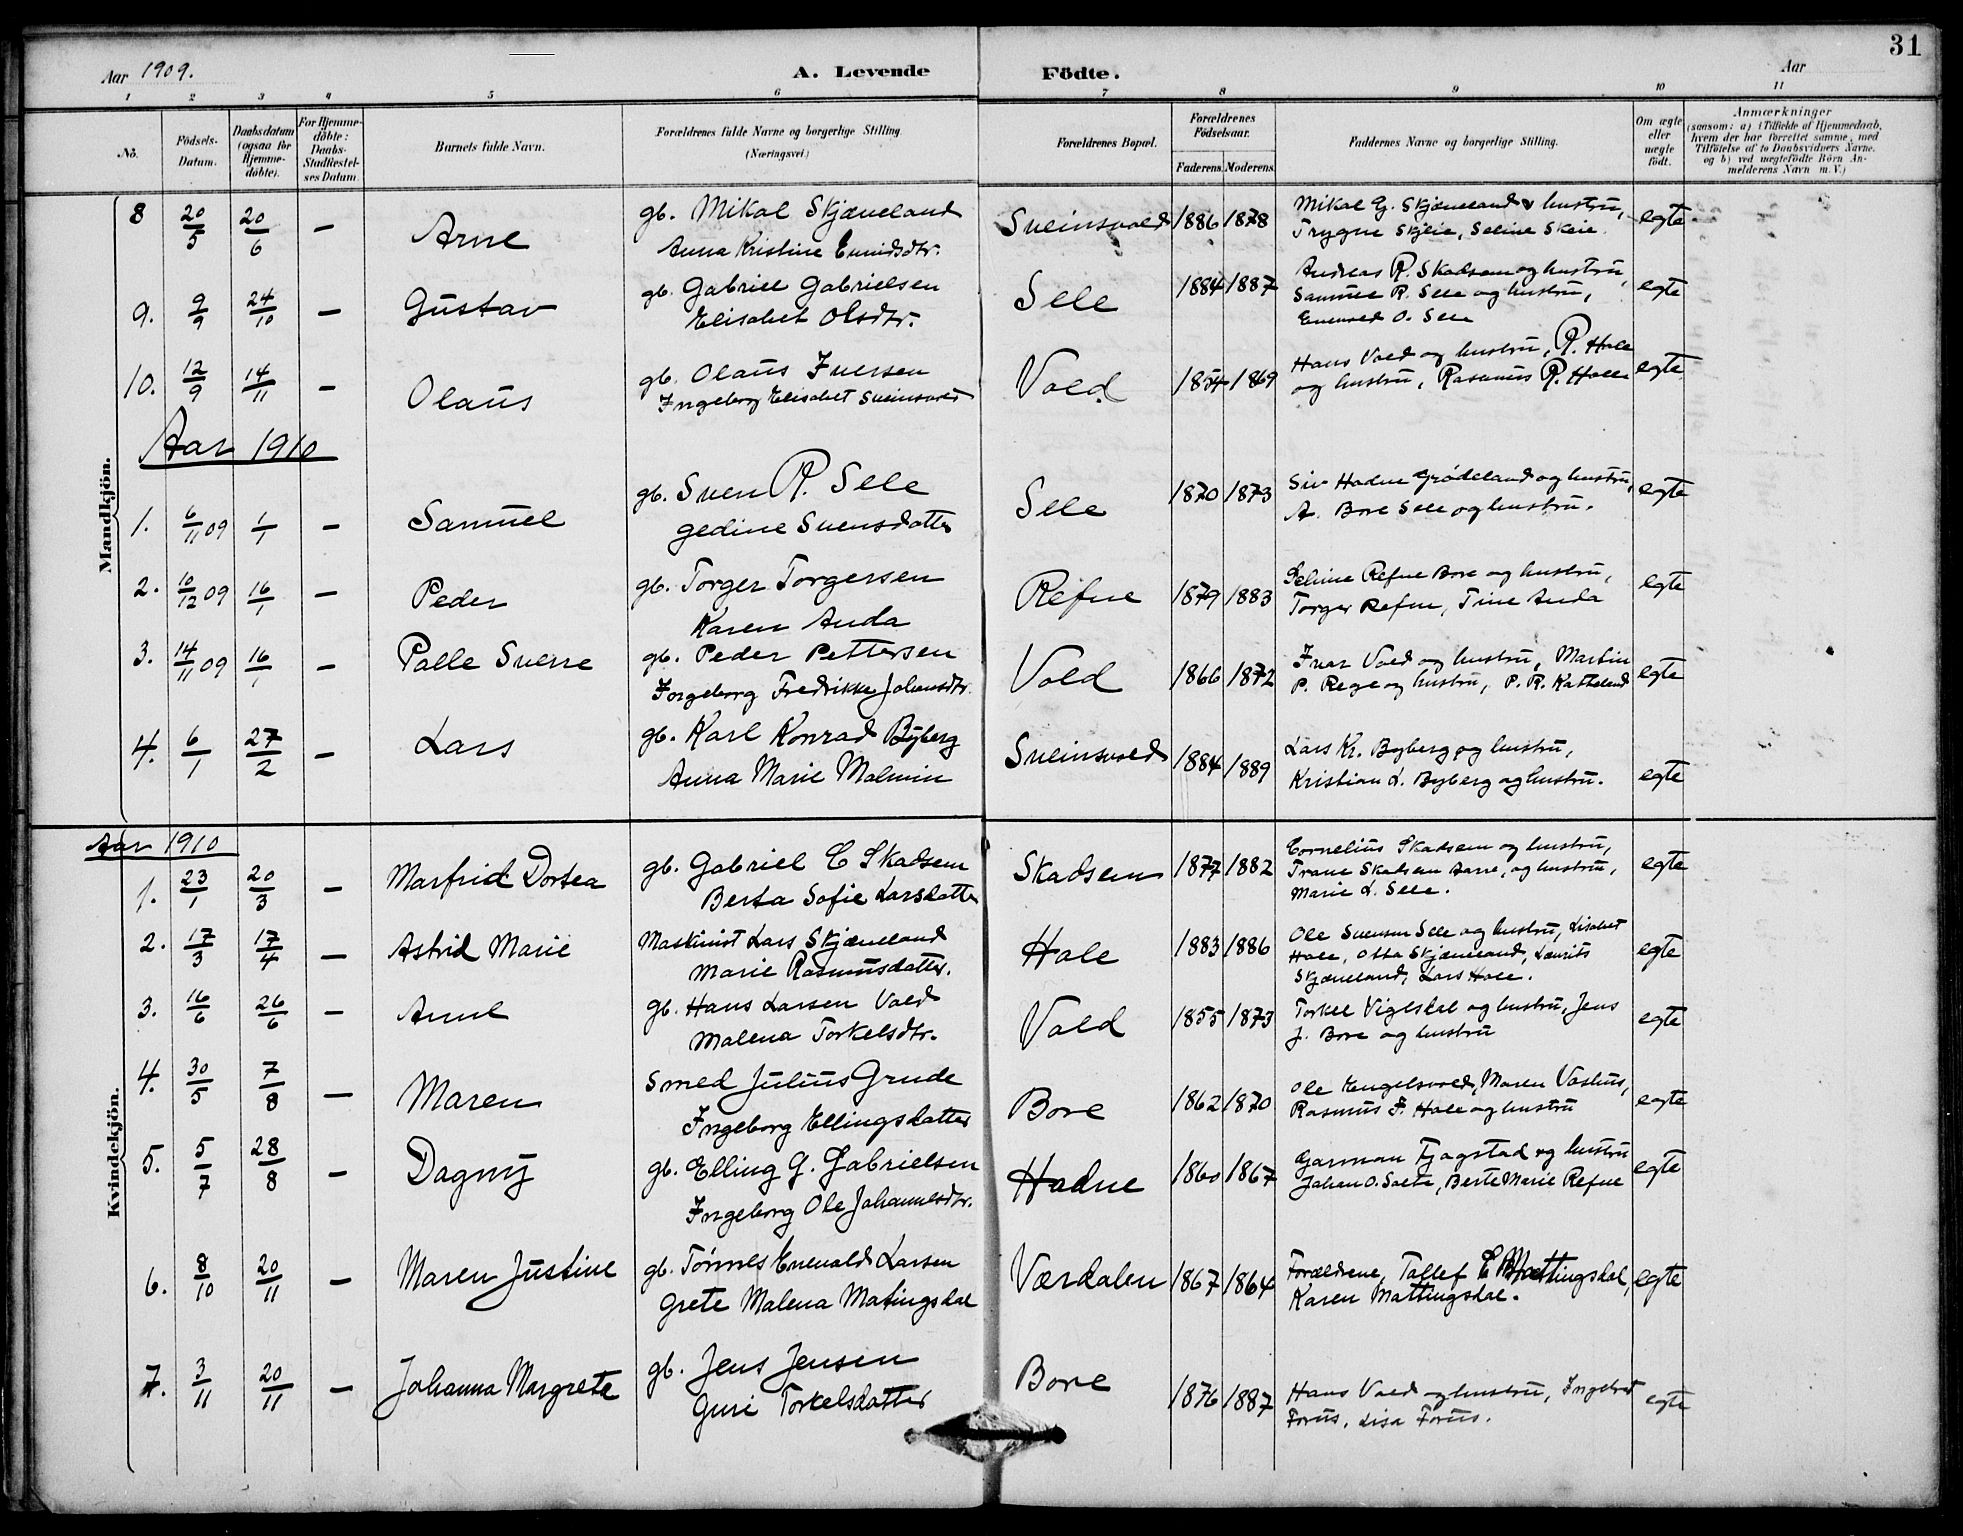 31
Aar 1909. A. Levende Födte. Aar
1 2 3 4 5 6 7 8 9 10 11
No. Födsels-Datum. Daabsdatum (ogsaa for Hjemme-döbte). For Hjemme-döbte: Daabs-Stadfæstel-ses Datum. Barnets fulde Navn. Forældrenes fulde Navne og borgerlige Stilling. (Næringsvei.) Forældrenes Bopæl. Forældrenes Födselsaar. Faderens. Moderens. Faddernes Navne og borgerlige Stilling. Om ægte eller uægte födt. Anmærkninger (saasom: a) i Tilfælde af Hjemmedaab, hvem der har forrettet samme, med Tilföielse af to Daabsvidners Navne. og b) ved uægtefödte Börn An-melderens Navn m. V.)
Mandkjön.
8 20/5 20/6 — Arne gb. Mikal Skjæveland Sveinsvold 1886 1878 Mikal G. Skjæveland & hustru, egte
Anna Kristine Trygve Skjeie, Seline Skeie.
9. 9/9 24/10 — Gustav gb. Gabriel Gabrielsen Sele 1884 1887 Andreas R. Skadsem og hustru, egte
Elisabet Olsdtr. Samuel R. Sele og hustru,
Enevald O. Sele
10. 12/9 14/11 — Olaus gb. Olaus Iversen Vold 1854 1869 Hans Vold og hustru, R. Hole egte
Ingeborg Elisabet Sveinsvold og hustru, Rasmus R. Hole
Aar 1910
1. 6/11 09 1/1 — Samuel gb. Sven R. Sele Sele 1870 1873 Siv. Hadne Grødeland og hustru, egte
gedine Svensdatter A. Bore Sele og hustru.
2. 10/12 09 16/1 — Peder gb. Torger Torgersen Refne 1879 1883 Refne Bore og hustru, egte
Karen Anda Torger Refne, Tine Anda
3. 14/11 09 16/1 — Palle Sverre gb. Peder Pettersen Vold 1866 1872 Ivar Vold og hustru, Martin egte
Ingeborg Fredrikke Johansdtr. P. Rege og hustru, P. R.
4. 6/1 27/2 — Lars gb. Karl Konrad Byberg Sveinsvold 1884 1889 Lars Kr. Byberg og hustru, egte
Anna Marie Malmin Kristian L. Byberg og hustru.
Kvindekjön.
Aar 1910
1. 23/1 20/3 — Marfrid Dortea gb. Gabriel C Skadsem Skadsem 1877 1882 Cornelius Skadsem og hustru, egte
Berta Sofie Larsdatter Trane Skadsem Aarre, og hustru,
Marie L. Sele.
2. 17/3 17/4 — Astrid Marie Maskinist Lars Skjæveland Hole 1883 1886 Ole Svensen Sele og hustru, Lisabet egte
Marie Rasmusdatter. Hole, Otta Skjæveland, Laurits
Skjæveland, Lars Hole.
3. 16/6 26/6 — Anne gb. Hans Larsen Vold Vold 1855 1873 Torkel Vigdal og hustru, Jens egte
Malena Torkelsdtr. J. Bore og hustru
4. 30/5 7/8 — Maren Smed Julius Grude Bore 1862 1870 Ole Engelsvold, Maren Vashus, egte
Ingeborg Ellingsdatter Rasmus F. Hole og hustru
5. 5/7 28/8 — Dagny gb. Elling G. Gabrielsen Hodne 1860 1867 Garman Fjogstad og hustru egte
Ingeborg Ole Johannesdtr. Johan O. Salte, Berte Marie Refne
6. 8/10 20/11 — Maren Justine gb. Tönnes Enevald Larsen Værdalen 1867 1864 Forældrene, Tallef E Mattingsdal, egte
Grete Malena Matingsdal Karen Mattingsdal.
7. 3/11 20/11 — Johanna Margrete gb. Jens Jensen Bore 1876 1887 Hans Vold og hustru, Ingebret egte
Guri Torkelsdatter Forus, Lisa Forus.